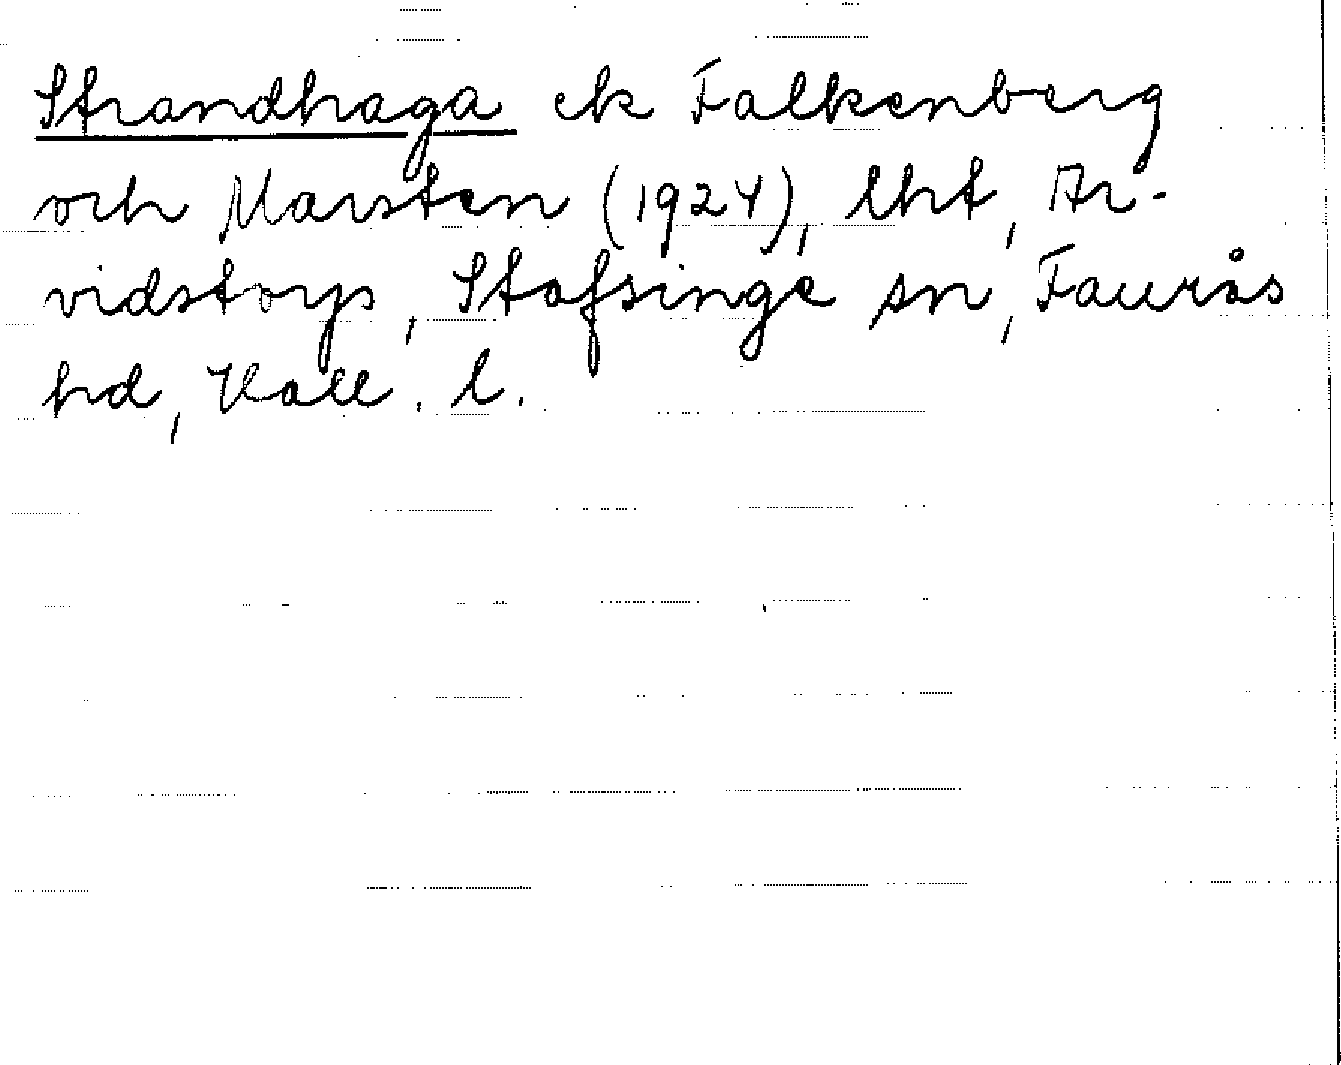 Strandhaga ek Falkenberg
och Marsten (1924), lht, Ar-
vidstorps, Stafsinge sn, Faurås
hd, Hall. l.